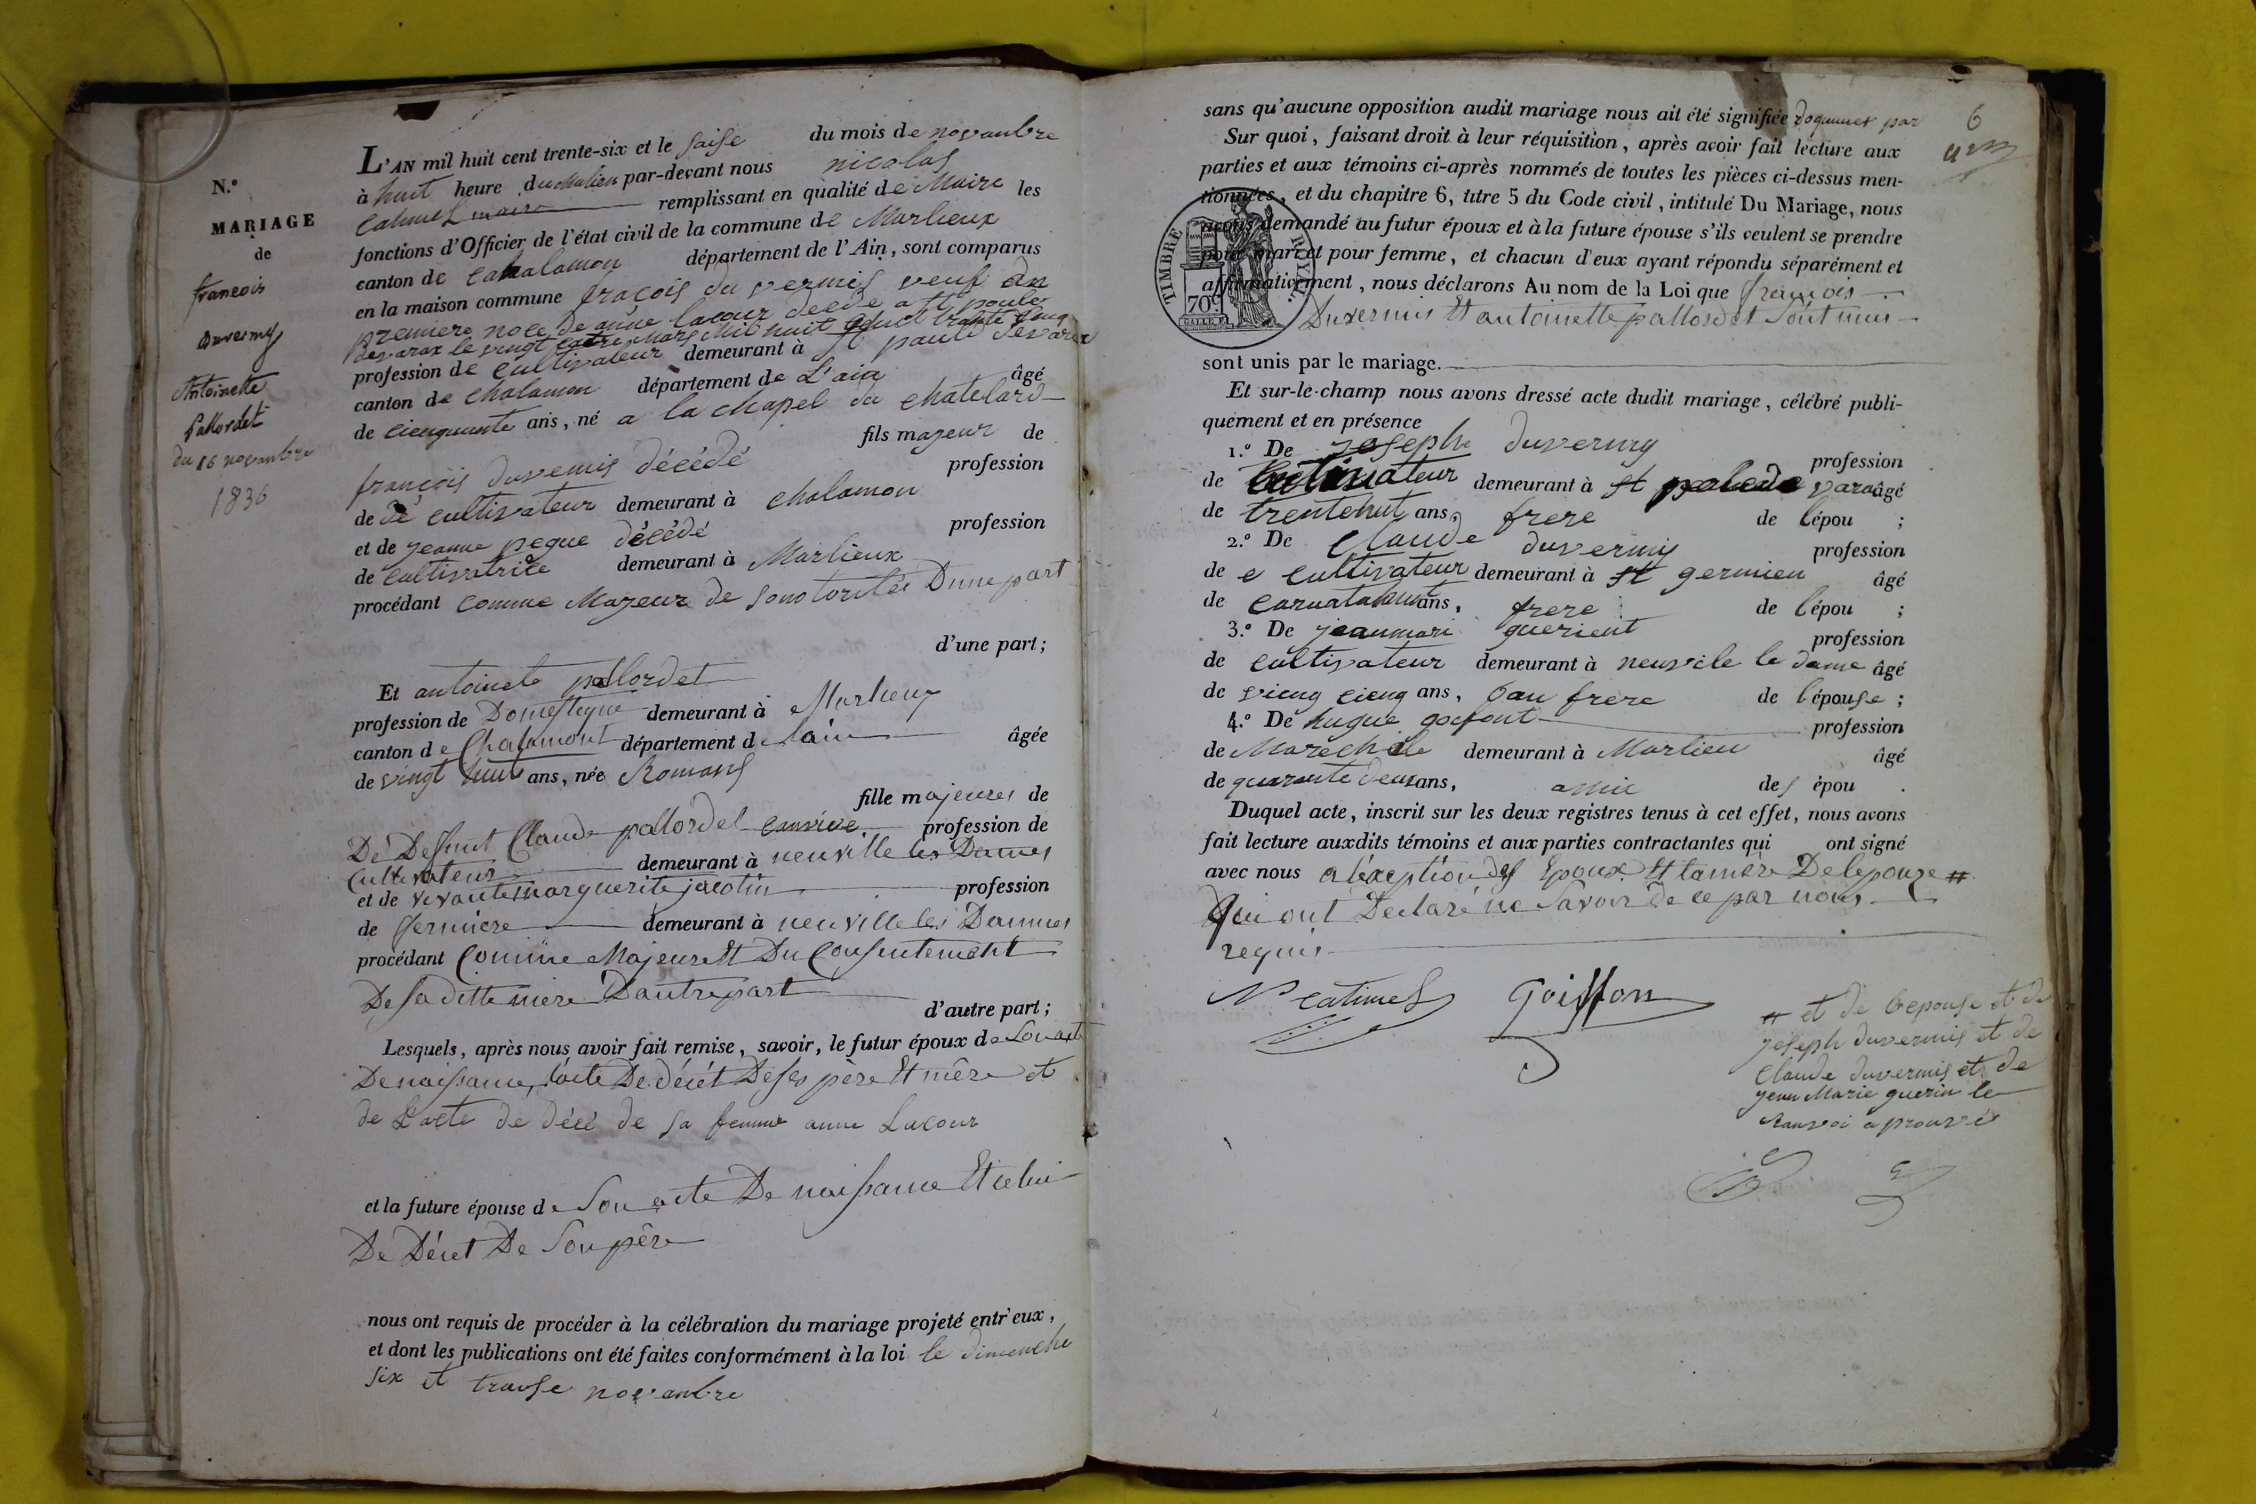 N.°
MARIAGE
de
francois
Duvernis
Antoinette
Pallordet
du 16 novanbre
1836
L'AN mil huit cent trente-six et le saise du mois de novanbre
à huit heure du matien par-devant nous nicolas
Catimel maire remplissant en qualité de Maire les
fonctions d'Officier de l'état civil de la commune de Marlieux
canton de Chalamon département de l'Ain, sont comparus
en la maison commune fraçois du vernis veuf an
premiere noce de anne lacour décédé a st poule
devarax le vingt catre mars mil huit cent trante cinq
profession de cultivateur demeurant à st paule devarax
canton de chalamon département de L'ain âgé
de cienquante ans, né a la chapel du chatelard
fils majeur de
françois duvernis décédé profession
de dé cultivateur demeurant à chalamon
et de jeanne pegue décédé profession
de cultivatrice demeurant à Marlieux
procédant comme Majeur de son otorités D'une part
d'une part;
Et antoinete pallordet
profession de Domestique demeurant à Marlieux
canton de Chalamont département de lain âgée
de vingt huit ans, née Romans
fille majeures de
De Defunt Claude pallordet profession de
Cultivateur demeurant à neuville les Dames
et de vivante marguerite jacotin profession
de fermière demeurant à neuville les Dammes
procédant Comme Majeure Et Du Consentement
De sa ditte mère D'autre part
d'autre part;
Lesquels, après nous avoir fait remise, savoir, le futur époux de Son acte
De naissance, l'acte De décét De ses père Et mère et
de L'acte de décé de sa femme anne Lacour
et la future épouse de Son acte De naissance Et celui
De Décet De Son père
nous ont requis de procéder à la célébration du mariage projeté entr'eux,
et dont les publications ont été faites conformément à la loi le dimenche
six et traise novanbre
6
sans qu'aucune opposition audit mariage nous ait été signifiée
Sur quoi, faisant droit à leur réquisition, après avoir fait lecture aux
parties et aux témoins ci-après nommés de toutes les pièces ci-dessus men-
tionnées, et du chapitre 6, titre 5 du Code civil, intitulé Du Mariage, nous
avons demandé au futur époux et à la future épouse s'ils veulent se prendre
pour mari et pour femme, et chacun d'eux ayant répondu séparément et
affirmativement, nous déclarons Au nom de la Loi que françois
Duvernis Et antoinette pallordet Sont unis
TIMBRE ROYAL.
70.c
sont unis par le mariage.
Et sur-le-champ nous avons dressé acte dudit mariage, célébré publi-
quement et en présence
1.° De joseph duverniy profession
de Cultivateur demeurant à st pole de varax âgé
de trentehut ans, frere de lépou ;
2.° De Claude duvernis profession
de e cultivateur demeurant à st germien âgé
de ans, frere de lépou ;
3.° De jeanmari guerient profession
de cultivateur demeurant à neuvile le dame âgé
de vieng cieng ans, bau frere de lépouse ;
4.° De hugue goifont profession
de Maréchale demeurant à Marlieu âgé
de quarante deux ans, amie des épou .
Duquel acte, inscrit sur les deux registres tenus à cet effet, nous avons
fait lecture auxdits témoins et aux parties contractantes qui ont signé
avec nous a léxception des Epoux Et la mère De l'epouze #
Qui ont Déclaré ne Savoir de ce par nous
requis
N catimel Goiffon
# et de lepouse et de
joseph duvernis et de
Claude duvernis et de
jean Marie guerin le
Ranvoi aprouvé